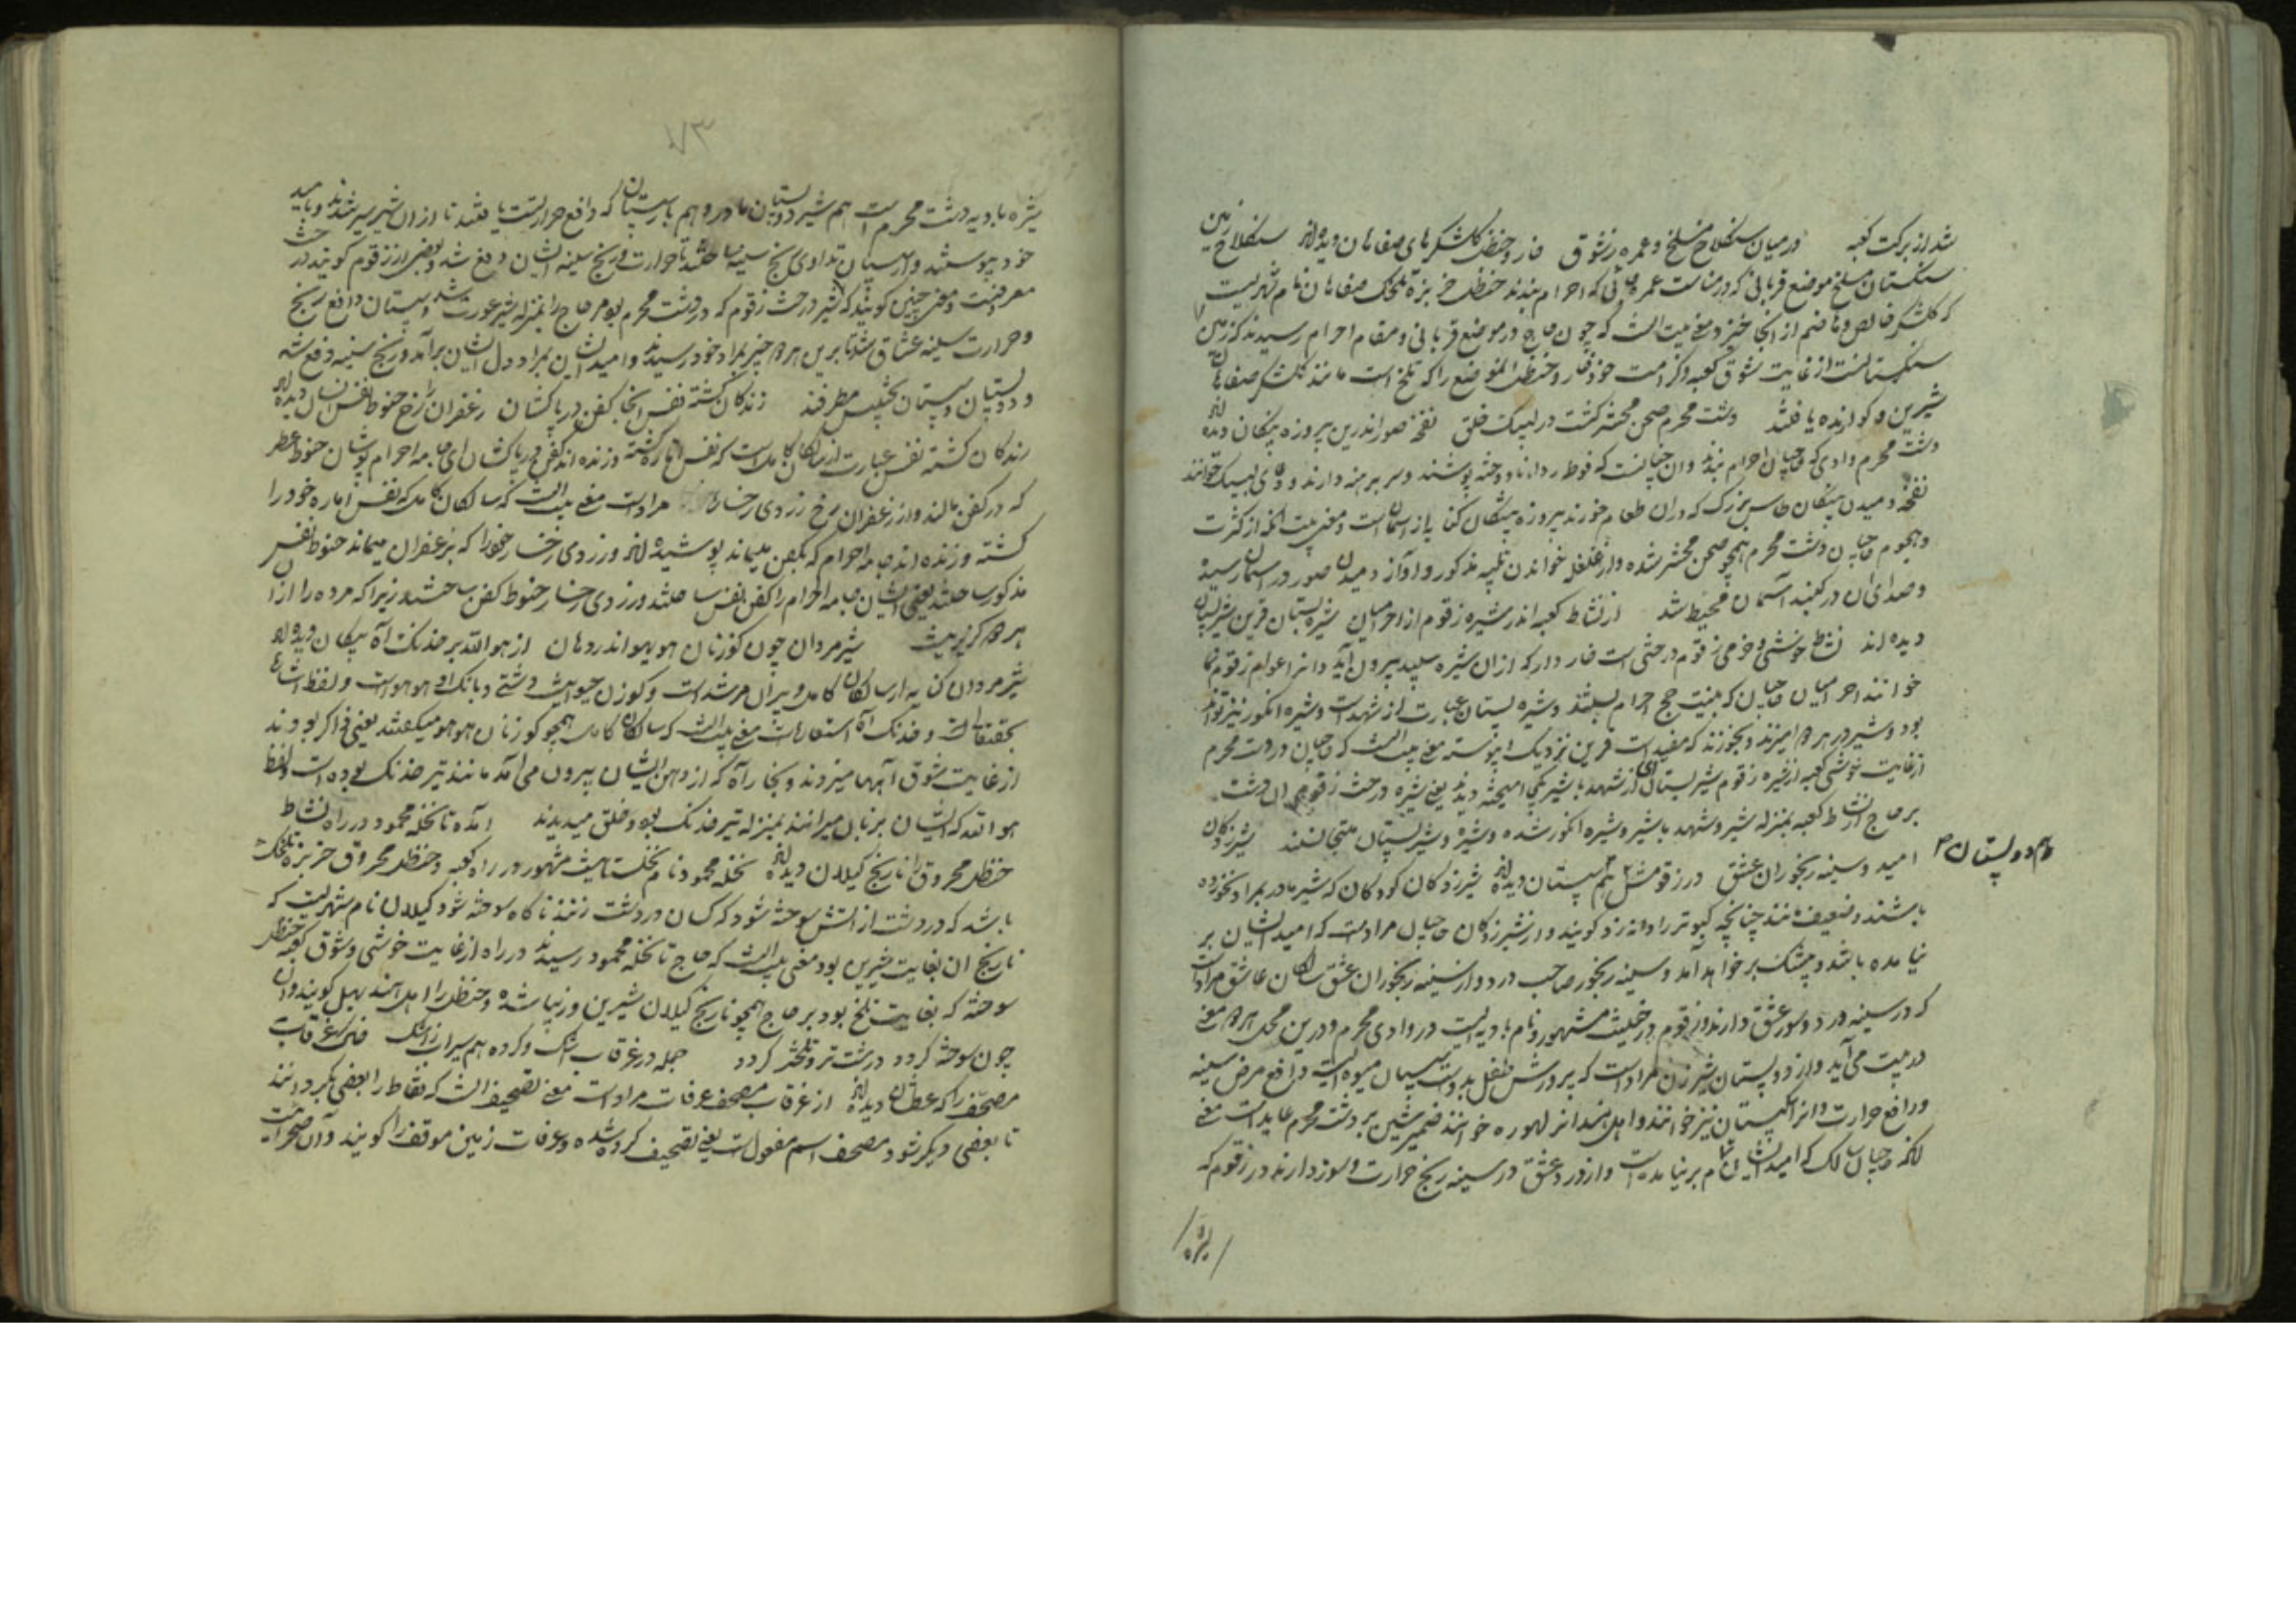 شد از برکت کعبه در میان سنگلاخ مسلخ و عمره ز شوق خار و حنظل گلشکرهای صفاهان دیده‌اند سنگلاخ زمین
سنگستان مسلخ موضع قربانی که در مناست عمره جائی که احرام بندند حنظل خربزه تلخک صفاهان نام شهریست
که گلشکر خالص و هاضم از انجا خیزد معنی بیت انست که چون حاج در موضع قربانی و مقام احرام رسیدند که زمین
سنگستانست از غایت شوق کعبه و کرامت خود خار و حنظل انموضع را که تلخ است مانند گلشکر صفاهان
شیرین و گوارنده یافتند دشت محرم صحن محشر گشت در لبیک خلق نفخه صور اندرین پیروزه پنگان دیده‌اند
دشت محرم وادی که حاجیان احرام بندند و ان چنانست که فوطه ردا نادوخته پوشند و سر برهنه دارند و دعای لبیک خوانند
نفخه دمیدن پنگان طاس بزرگ که دران طعام خورند پیروزه پنگان کنایه از آسمان است و معنی بیت انکه از کثرت
و هجوم حاجیان دشت محرم همچو صحن محشر شده و از غلغله خواندن تلبیه مذکور و آواز دمیدن صور در آسمان رسیده
و صدای ان در گنبد آسمان محیط شد از نشاط کعبه اندر شیره زقوم از احرامیان شیره بستان قرین شیر پستان
دیده‌اند نشاط خوشی و خرمی زقوم درختی است خار دار که ازان شیره سپید بیرون آید و انرا عوام زقوم نما
خوانند احرامیان حاجیان که بنیت حج احرام بستند و شیره بستان عبارت از شهد است و شیره انگور نیز تواند
بود و شیر در هر دو امیزند و بخورند که مفید است قرین نزدیک و پیوسته معنی بیت انست که حاجیان در دشت محرم
از غایت خوشی کعبه از شیره زقوم شیر بستان ای از شهد با شیر یکجا امیخته دیدند یعنی شیره درخت زقوم ان دشت
بر حاج از نشاط کعبه بمنزله شیر و شهد با شیر و شیره انگور شده و شیره و شیر پستان متجانسند شیرزدگان
امید و سینه رنجوران عشق در زقومش هم پستان دیده‌اند شیرزدگان کودکان که شیر مادر بمراد نخورده
هم دو پستان ۳
باشند و ضعیف مانند چنانچه کبوتر را دانه زد گویند و از شیرزدگان حاجیان مراد است که امید ایشان بر
نیامده باشد و بیشک بر خواهد آمد و سینه رنجور صاحب درد و از سینه رنجوران عشق سالکان عاشق مراد است
که در سینه درد و سوز عشق دارند و زقوم درختیست مشهور و نام بادیه ایست در وادی محرم و درین محل هر دو معنی
درست می‌آید و از دو پستان شیر زن مراد است که پرورش طفل بدوست سپستان میوه ایست دافع مرض سینه
و رافع حرارت و انرا سپستان نیز خوانند و اهل هند انرا لهوره خوانند ضمیر شین بر دشت محرم عاید است معنی
انکه حاجیان سالک که امید ایشان تمام برنیامده است و از درد عشق در سینه رنج حرارت و سوز دارند در زقوم که
شیره
۷۳
شیره بادیه دشت محرم است هم شیر دو پستان مادر و هم بار سپستان که دافع حرارتست یافتند تا از ان شیر سیر شدند و باامید
خود پیوستند و از سپستان تداوی رنج سینها ساختند تا حرارت و رنج سینه ایشان دفع شد و بعضی از زقوم گویند درخت
معرفتست و معنی چنین گویند که شیر درخت زقوم که در دشت محرم بود مر حاج را بمنزله شیر عورت شد و سپستان دافع رنج
و حرارت سینه عشاق شد تا برین هر دو چیز بمراد خود رسیدند و امید ایشان بمراد دل ایشان برآمد و رنج سینه دفع شد
و دو پستان و سپستان تجنیس مطرفند زندگان کشته نفس انجا کفن در پا کشان زعفران رخ حنوط نفس ایشان دیده‌اند
زندگان کشته نفس عبارت از سالکان کاملست که نفس اماره کشته و زنده اند کفن در پا کشان ای جامه احرام پوشان حنوط عطر
که در کفن مالند و از زعفران رخ زردی رخسار مراد است معنی بیت انست که سالکان کامل که نفس اماره خود را
کشته و زنده اند جامه احرام که بکفن میماند پوشیده‌اند و زردی رخسار خود را که بزعفران میماند حنوط نفس
مذکور ساختند یعنی ایشان جامه احرام را کفن نفس ساختند و زردی رخسار حنوط کفن ساختند زیرا که مرده را از ان
هر دو گزیر نیست شیرمردان چون گوزنان هوهو اندر دهان از هو الله بر خدنگ آه پیکان دیده‌اند
شیرمردان کنایه از سالکان کامل و پیران مرشد است و گوزن حیوانیست دشتی و بانگ او هوهوست و لفظ اشاع
بحقیقت است و خدنگ آه استعارتست معنی بیت انست که سالکان کامل همچو گوزنان هوهو میگفتند یعنی ذاکر بودند
از غایت شوق آهها میزدند و بخار آه که از دهن ایشان بیرون می‌آمد مانند تیر خدنگ بوده است و لفظ
هو الله که ایشان بر زبان میراندند بمنزله تیر خدنگ بود و خلق میدیدند آمده تا نخله محمود در راه نشاط
حنظل محروق را نارنج گیلان دیده‌اند نخله محمود نام نخلستانیست مشهور در راه کعبه و حنظل محروق خربزه تلخک
باشد که در دشت از آتش سوخته شود که کسان در دشت زنند تا کاه سوخته شود گیلان نام شهریست که
نارنج ان بغایت شیرین بود معنی بیت انست که حاج تا نخله محمود رسیدند در راه از غایت خوشی و شوق کعبه حنظل
سوخته که بغایت تلخ بود بر حاج همچو نارنج گیلان شیرین و زیبا شده و حنظل را اهل هند بهل گویند و ان
چون سوخته گردد درشت تر و تلختر گردد جمله در غرقاب اشک و کرده هم سیراب ز اشک خاک غرقاب
مصحف را که عطشان دیده‌اند از غرقاب مصحف عرفات مراد است معنی تصحیف انست که نقاط را بعضی بگردانند
تا بعضی دیگر شود مصحف اسم مفعولست یعنی تصحیف کرده شده و عرفات زمین موقف را گویند و آن صحراایست